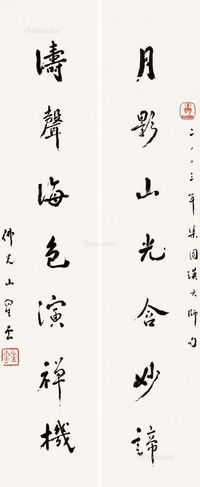 月影山光含妙諦
二〇〇三年集圓瑛大師句
濤聲海色演禪機
佛光山星雲